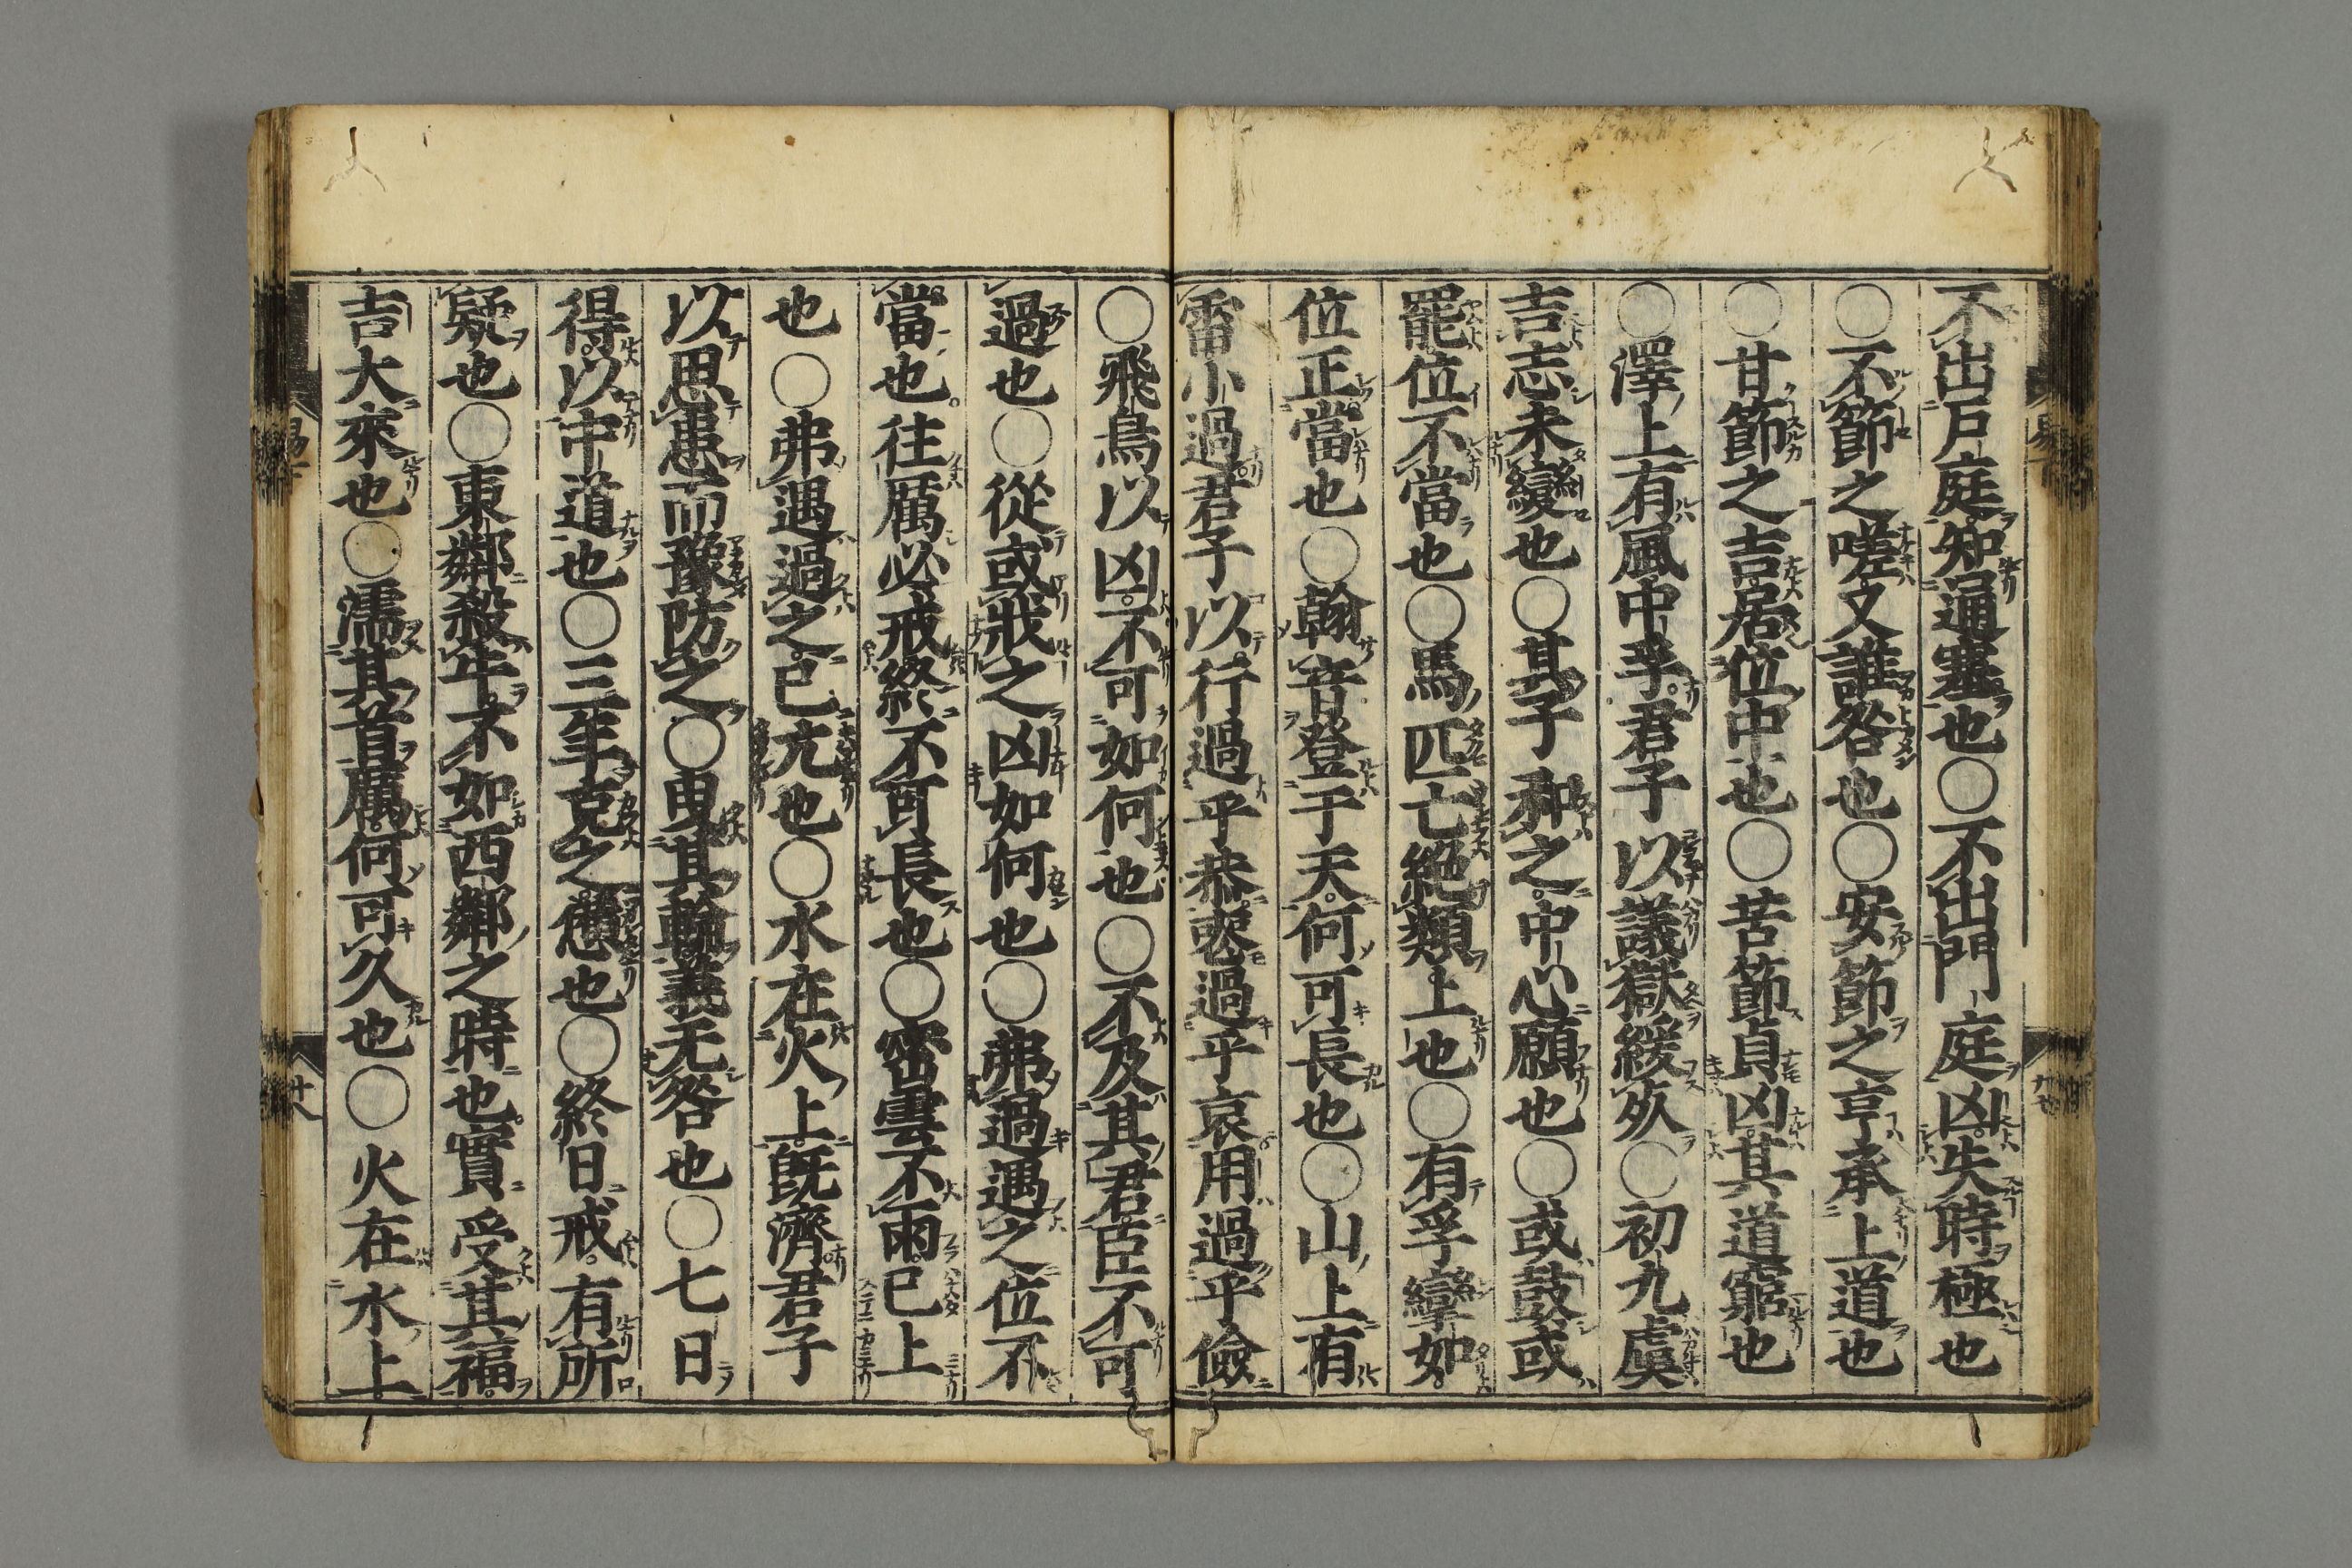 不出戸庭知通塞也〇不出門庭凶失時極也
〇不節之嗟又誰咎也〇安節之亨承上道也
〇甘節之吉居位中也〇苦節貞凶其道窮也
〇澤上有風中孚君子以議獄緩死〇初九虞
吉志未變也〇其子和之中心願也〇或鼓或
罷位不當也〇馬匹亡絕類上也〇有孚攣如
位正當也〇翰音登于天何可長也〇山上有
雷小過君子以行過乎恭喪過乎哀用過乎儉
〇飛鳥以凶不可如何也〇不及其君臣不可
過也〇從或戕之凶如何也〇弗過遇之位不
當也往厲必戒終不可長也〇密雲不雨已上
也〇弗遇過之已亢也〇水在火上既濟君子
以思患而豫防之〇曳其輪義无咎也〇七日
得以中道也〇三年克之憊也〇終日戒有所
疑也〇東鄰殺牛不如西鄰之時也實受其福
吉大來也〇濡其首厲何可久也〇火在水上